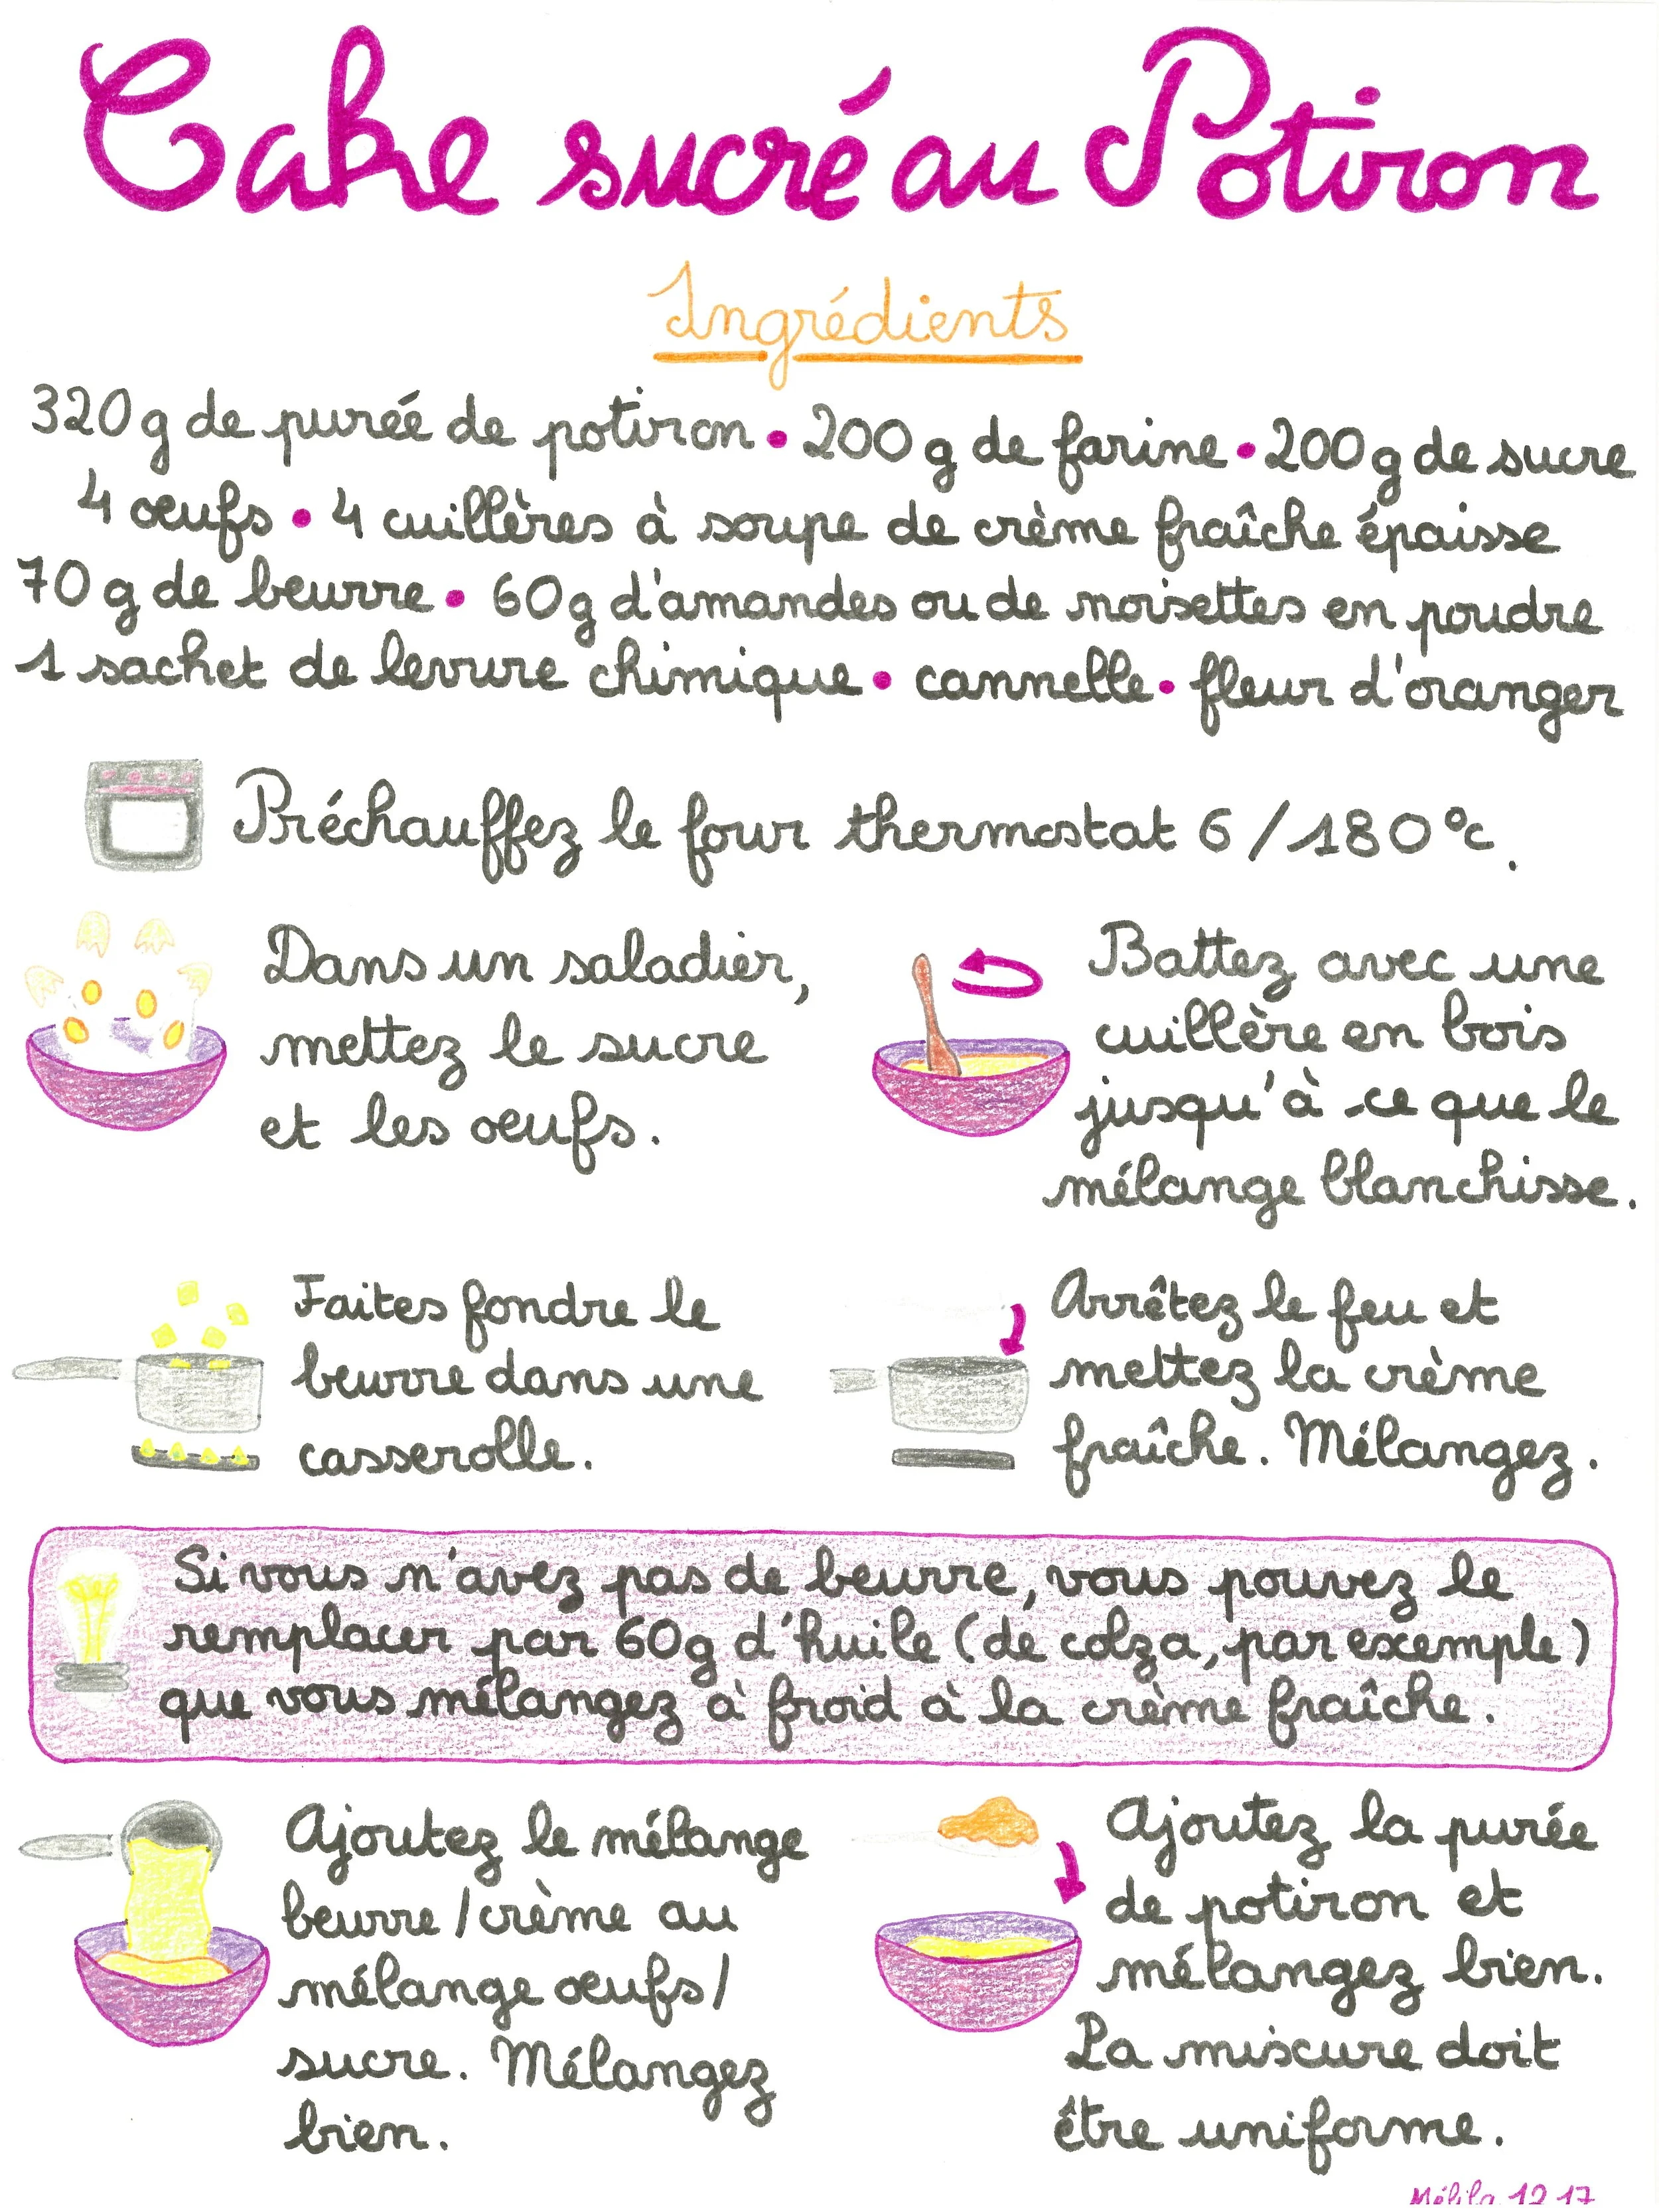 Cake sucré au Potiron
Ingrédients
320 g de purée de potiron • 200 g de farine • 200 g de sucre
4 œufs • 4 cuillères à soupe de crème fraîche épaisse
70 g de beurre • 60 g d'amandes ou de noisettes en poudre
1 sachet de levure chimique • cannelle • fleur d'oranger
Préchauffez le four thermostat 6 / 180°c.
Dans un saladier,
mettez le sucre
et les œufs.
Battez avec une
cuillère en bois
jusqu'à ce que le
mélange blanchisse.
Faites fondre le
beurre dans une
casserolle.
Arrêtez le feu et
mettez la crème
fraîche. Mélangez.
Si vous n'avez pas de beurre, vous pouvez le
remplacer par 60g d'huile (de colza, par exemple)
que vous mélangez à froid à la crème fraîche.
Ajoutez le mélange
beurre / crème au
mélange œufs /
sucre. Mélangez
bien.
Ajoutez la purée
de potiron et
mélangez bien.
La mixture doit
être uniforme.
Mélila 12 17